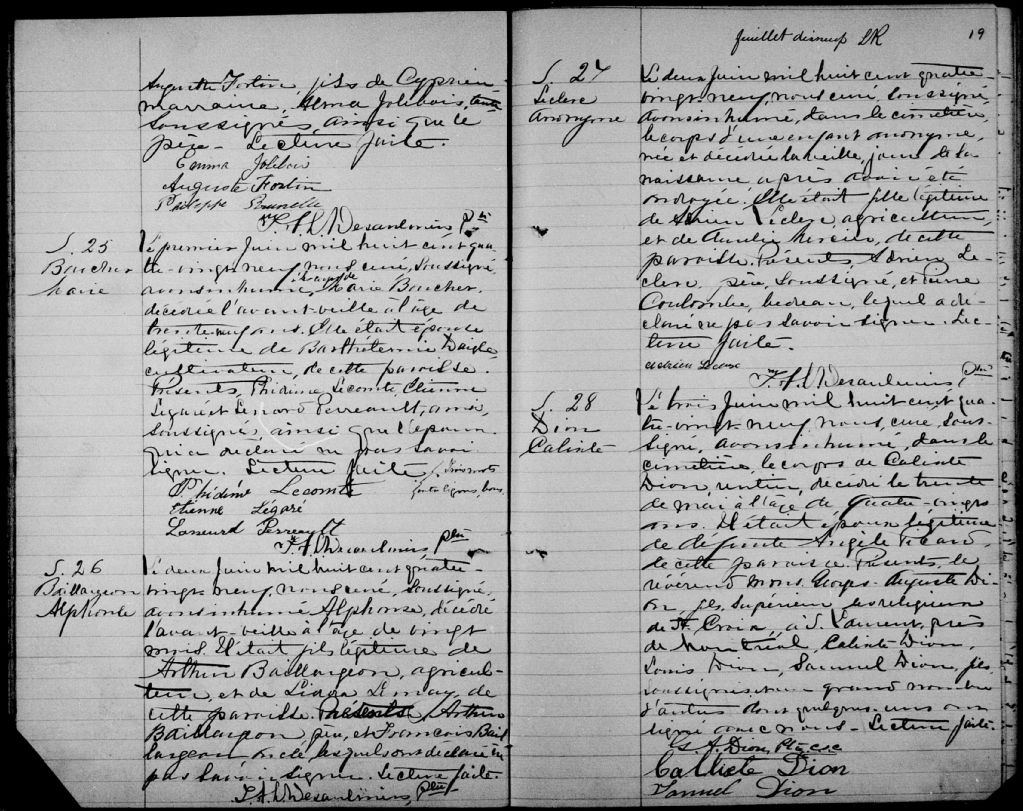 Auguste Fortin, fils de Cyprien
marraine, Alma Jolibois,
soussignés, ainsi que le
père. Lecture faite.
Emma Jolibois
Auguste Fortin
Philippe Brunelle
F. H. L. Desaulniers, ptre
S. 25
Boucher
Marie
Le premier Juin mil huit cent qua
tre-vingt-neuf, nous curé, soussigné,
avons inhumé, le corps de Marie Boucher,
décédée l'avant-veille à l'âge de
trente-neuf ans. Elle était épouse
légitime de Barthélemie Daigle
cultivateur, de cette paroisse.
Présents, Phidime Lecomte, Etienne
Légaré et Léonard Perreault, amis,
soussignés, ainsi que l'époux
qui a déclaré ne pas savoir
signer. Lecture faite
Phidime Lecomte
Etienne Légaré
Leonard Perreault
F. H. L. Desaulniers, ptre
S. 26
Baillargeon
Alphonse
Le deux Juin mil huit cent quatre-
vingt-neuf, nous curé, soussigné,
avons inhumé Alphonse, décédé
l'avant-veille à l'âge de vingt
mois. Il était fils légitime de
Arthur Baillargeon, agricul-
teur, et de Lemay, de
cette paroisse. Présents, Arthur
Baillargeon, père, et François Bail
largeon oncle lesquels ont déclaré ne
pas savoir signer. Lecture faite
F. H. L. Desaulniers, ptre
juillet dixneuf LR
19
S. 27
Leclerc
Anonyme
Le deux Juin mil huit cent quatre
vingt-neuf, nous curé, soussigné,
avons inhumé, dans le cimetière,
le corps d'une enfant anonyme,
née et décédée la veille, jour de sa
naissance, après avoir été
ondoyée. Elle était fille légitime
de Adrien Leclerc, agriculteur,
et de Aurélie Mercier, de cette
paroisse. Présents Adrien Le-
clerc, père, soussigné, et Pierre
Coulombe, bedeau, lequel a dé-
claré ne pas savoir signer. Lec-
ture faite.
Adrien Leclerc
F. H. L. Desaulniers, ptre
S. 28
Dion
Calixte
Le trois Juin mil huit cent qua
tre-vingt-neuf, nous, curé, sous-
signé, avons inhumé, dans le
cimetière, le corps de Calixte
Dion, rentier, décédé le trente
de mai à l'âge de quatre-vingts
ans. Il était époux légitime
de défunte Angèle Picard,
de cette paroisse. Présents, le
révérend Mons. Georges-Auguste Di-
on, fils, Supérieur des religieux
de Ste Croix, à S. Laurent, près
de Montréal, Calixte Dion,
Louis Dion, Samuel Dion, fils,
soussignés et un grand nombre
d'autres dont quelques-uns ont
signé avec nous. Lecture faite.
G. A. Dion, Ptre c.s.c.
Callixte Dion
Samuel Dion